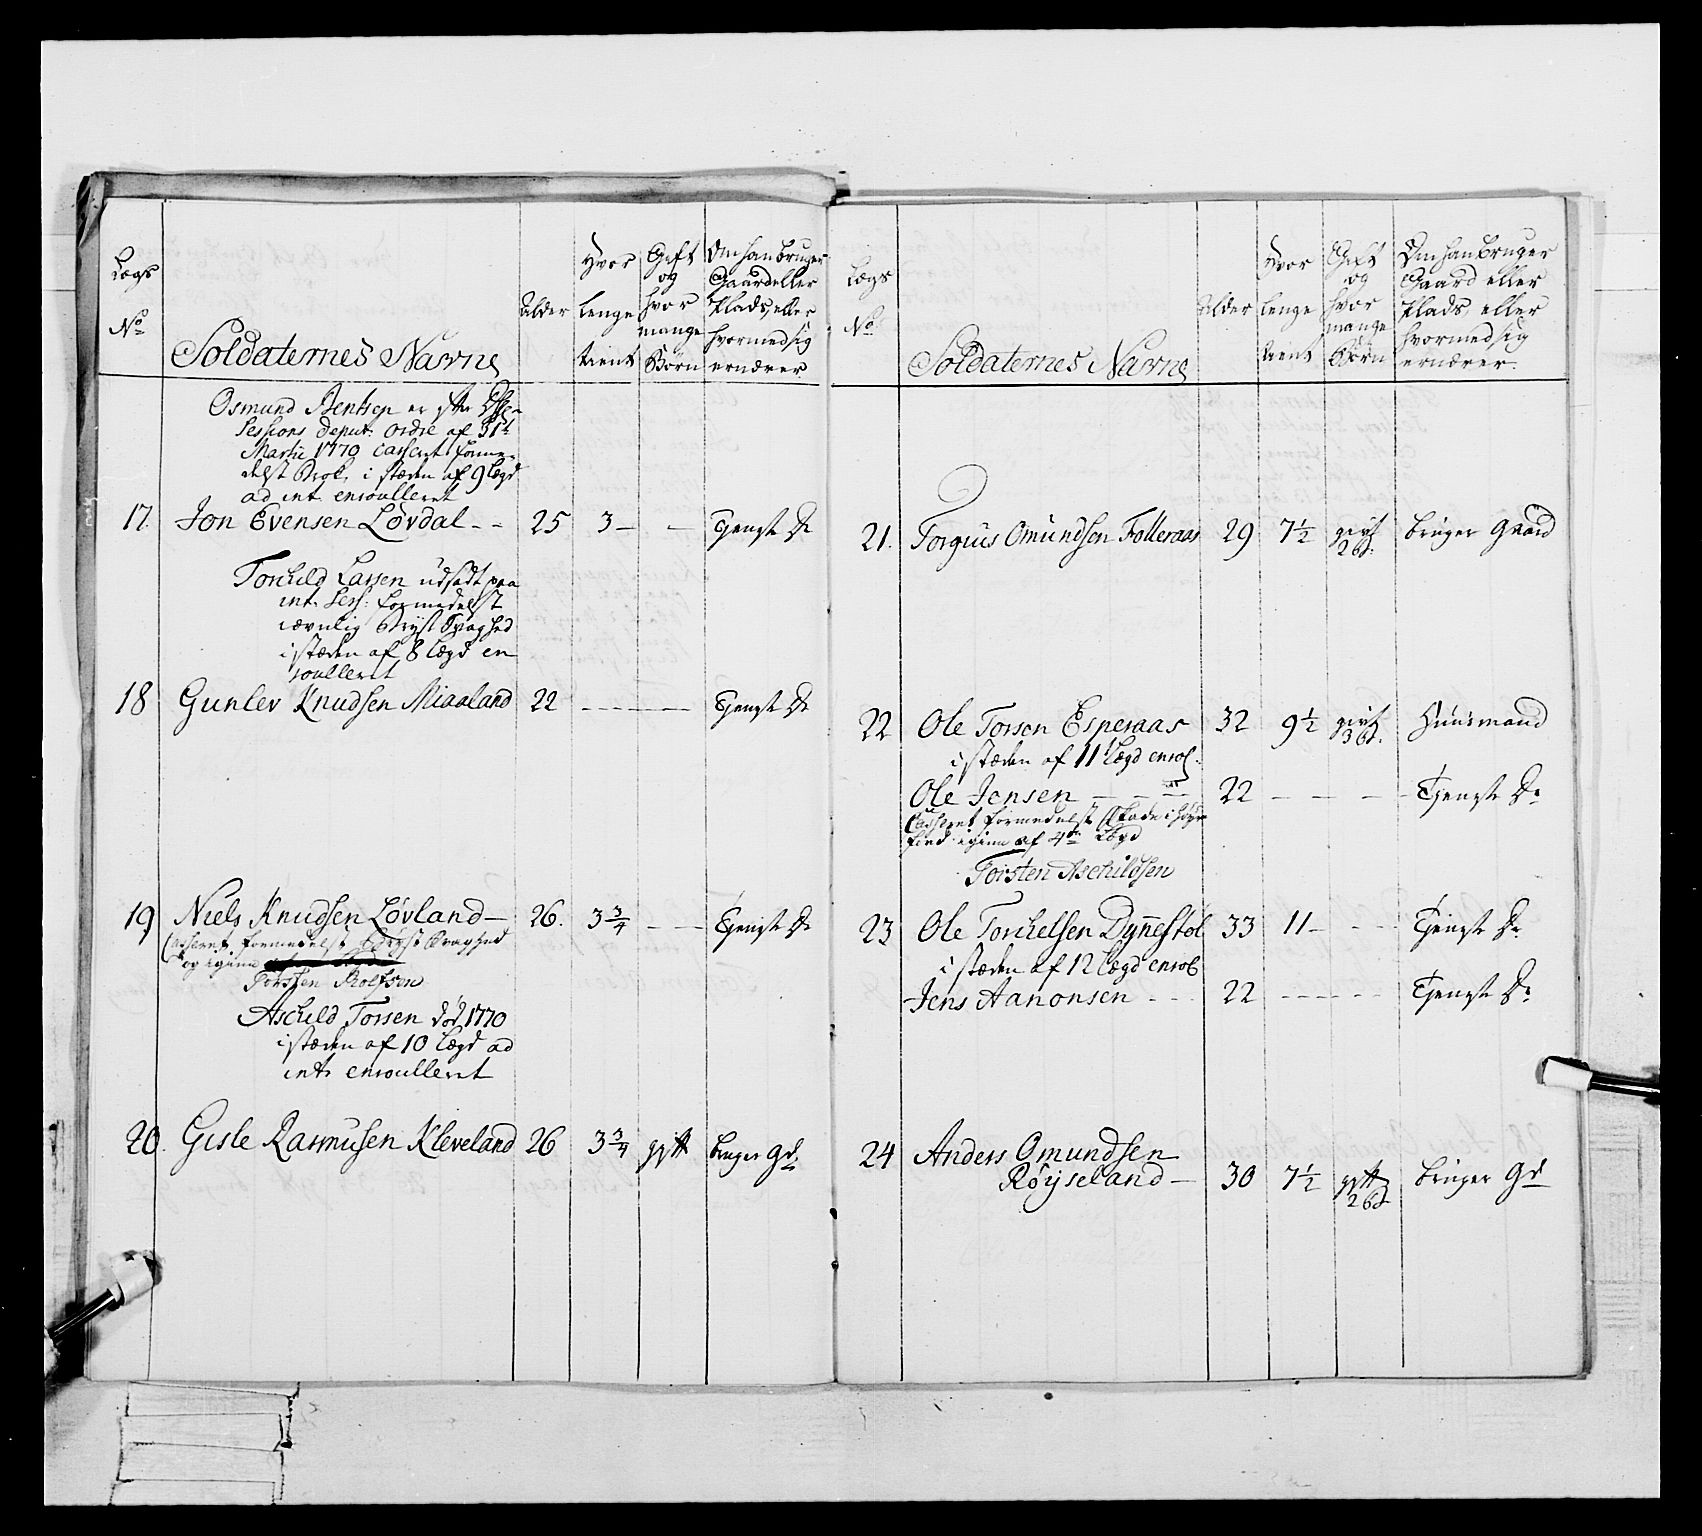 Lægs
No
Soldaternes Navne
Alder
Hvor
lenge
tient
Gift
og
hvor
mange
Börn
Om han bruger
Gaard eller
Plads, eller
hvormed sig
ernærer
Osmund Bentsen er efter
Sessions Deput: Ordre af 31t
Martii 1770 Casseret forme-
delst Brok, i stæden af 9 Lægd
ad int. enroulleret
17. Jon Evensen Lövdal - - 25 3 - - Tjeneste Dr
Torkild Larsen udsadt paa
int. Sess: formedelst
iævnlig Bryst Svaghed
i stæden af 8 Lægd en
roulleret
18 Gunlev Knudsen Miaaland 22 - - - - - Tjeneste Dr
19 Niels Knudsen Lövland - 26. 3 3/4 - - Tjeneste Dr
Casseret formedelst Bryst Svaghed
og igien
Torsten Rolfsen
Aschild Torsen död 1770
i stæden af 10 Lægd ad
int. enroulleret
20. Gisle Rasmusen Kleveland 26 3 3/4 gift bruger Gd
Lægs
No
Soldaternes Navne
Alder
Hvor
lenge
tient
Gift
og
hvor
mange
Börn
Om han bruger
Gaard eller
Plads, eller
hvormed sig
ernærer.
21. Torguus Omundsen Folleraas 29 7 1/2 gift bruger Gaard
2 b.
22 Ole Torsen Esperaas 32 9 1/2 gift Huusmand
3 b.
i stæden af 11 Lægd enrol.
Ole Jensen - - - 22 - - - Tjeneste Dr
Casseret formedelst Skade i höyre
igien af 4de Lægd
Torsten Aschildsen
23 Ole Torkelsen Dynnestöl 33 11 - - - Tjeneste Dr
i stæden af 12 Lægd enrol
Jens Aanonsen - - - 22 - - - - - Tjeneste Dr
24 Anders Omundsen
Röyseland - 30 7 1/2 gift bruger Gd
2 b